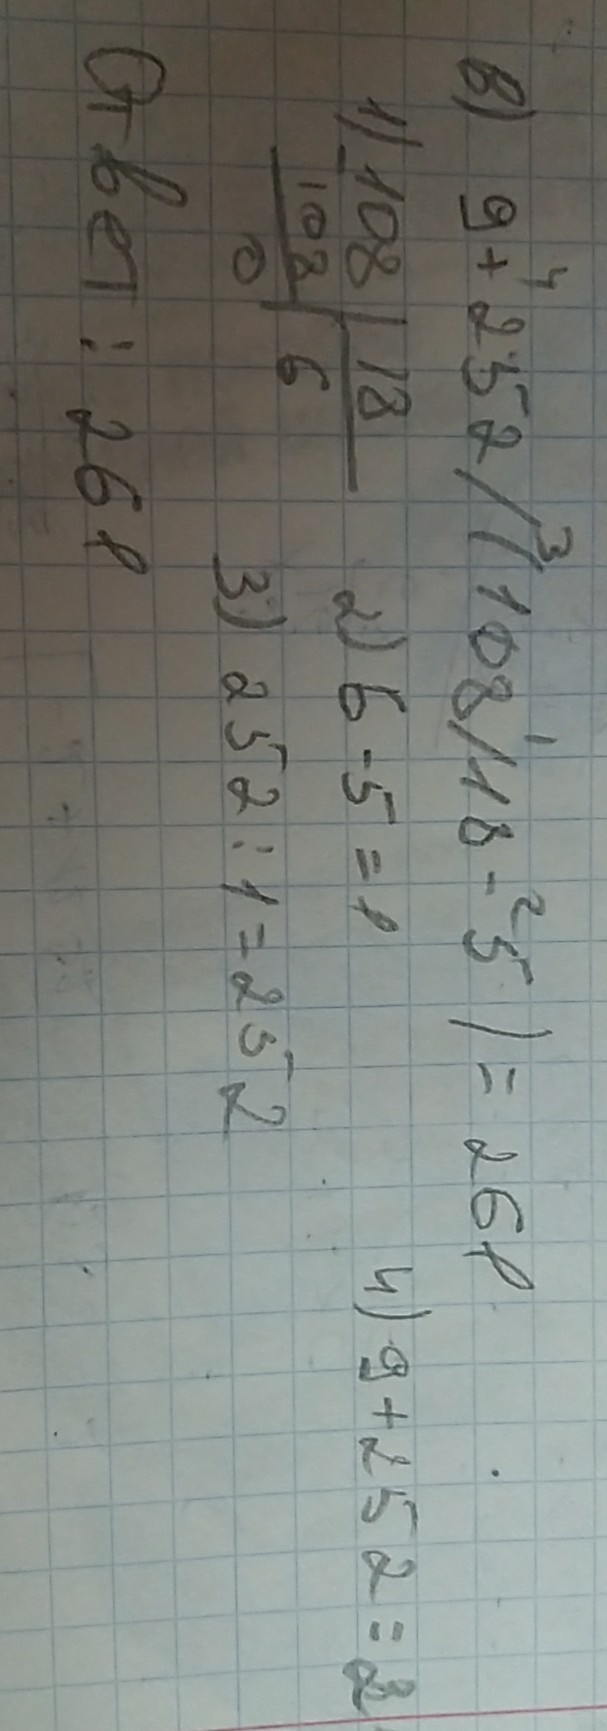 в) 9+252/(108/18-5)=261
4 3 1 2
1) 108 | 18
108 | 6
0
2) 6-5=1
3) 252:1=252
4) 9+252=2
Ответ: 261